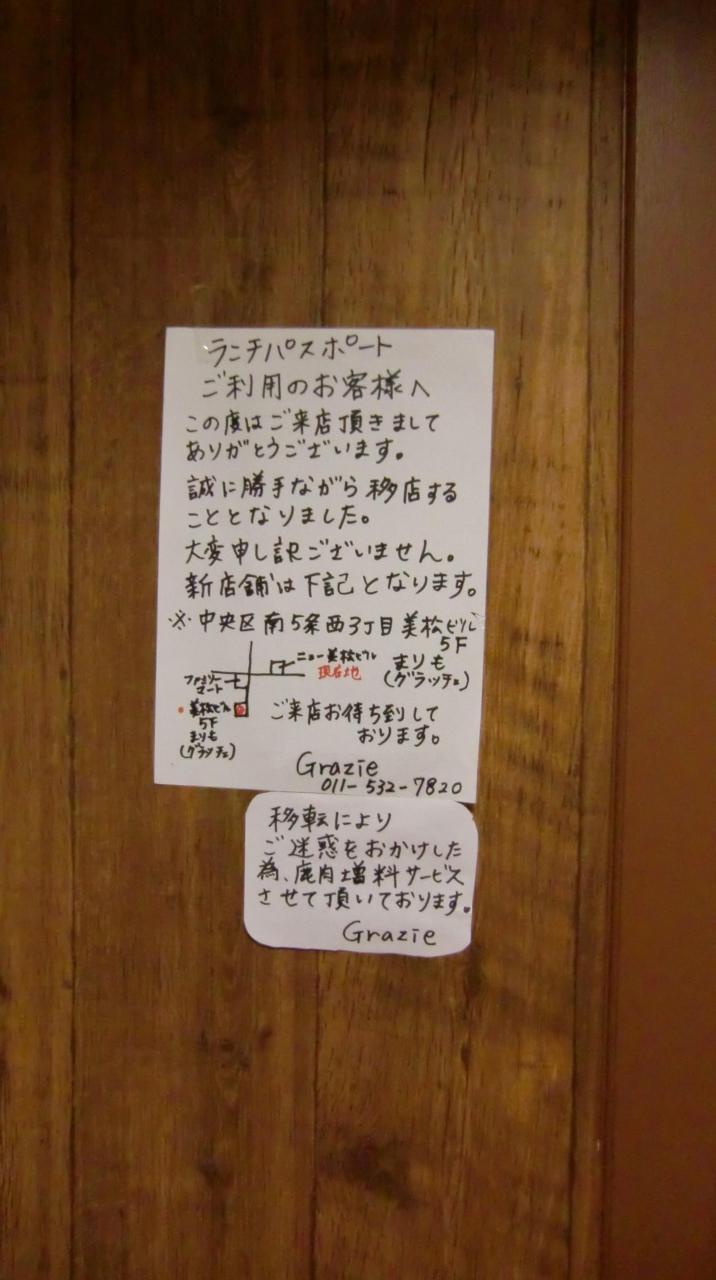 ランチパスポート
ご利用のお客様へ
この度はご来店頂きまして
ありがとうございます。
誠に勝手ながら移店する
こととなりました。
大変申し訳ございません。
新店舗は下記となります。
※中央区南5条西3丁目美松ビル
5F
まりも
(グラッチェ)
ニュー美松ビル
現在地
ファミリー
マート
美松ビル
5F
まりも
(グラッチェ)
ご来店お待ち致して
おります。
Grazie
011-532-7820
移転により
ご迷惑をおかけした
為、鹿肉増料サービス
させて頂いております。
Grazie